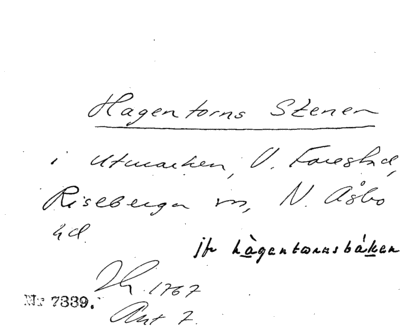 Hagentorns Stenen
i Utmarken, V. Forestad,
Riseberga sn, N. Åsbo
hd.
jfr hagentornsbàken
Lh 1767
No 7339.
Ant 7